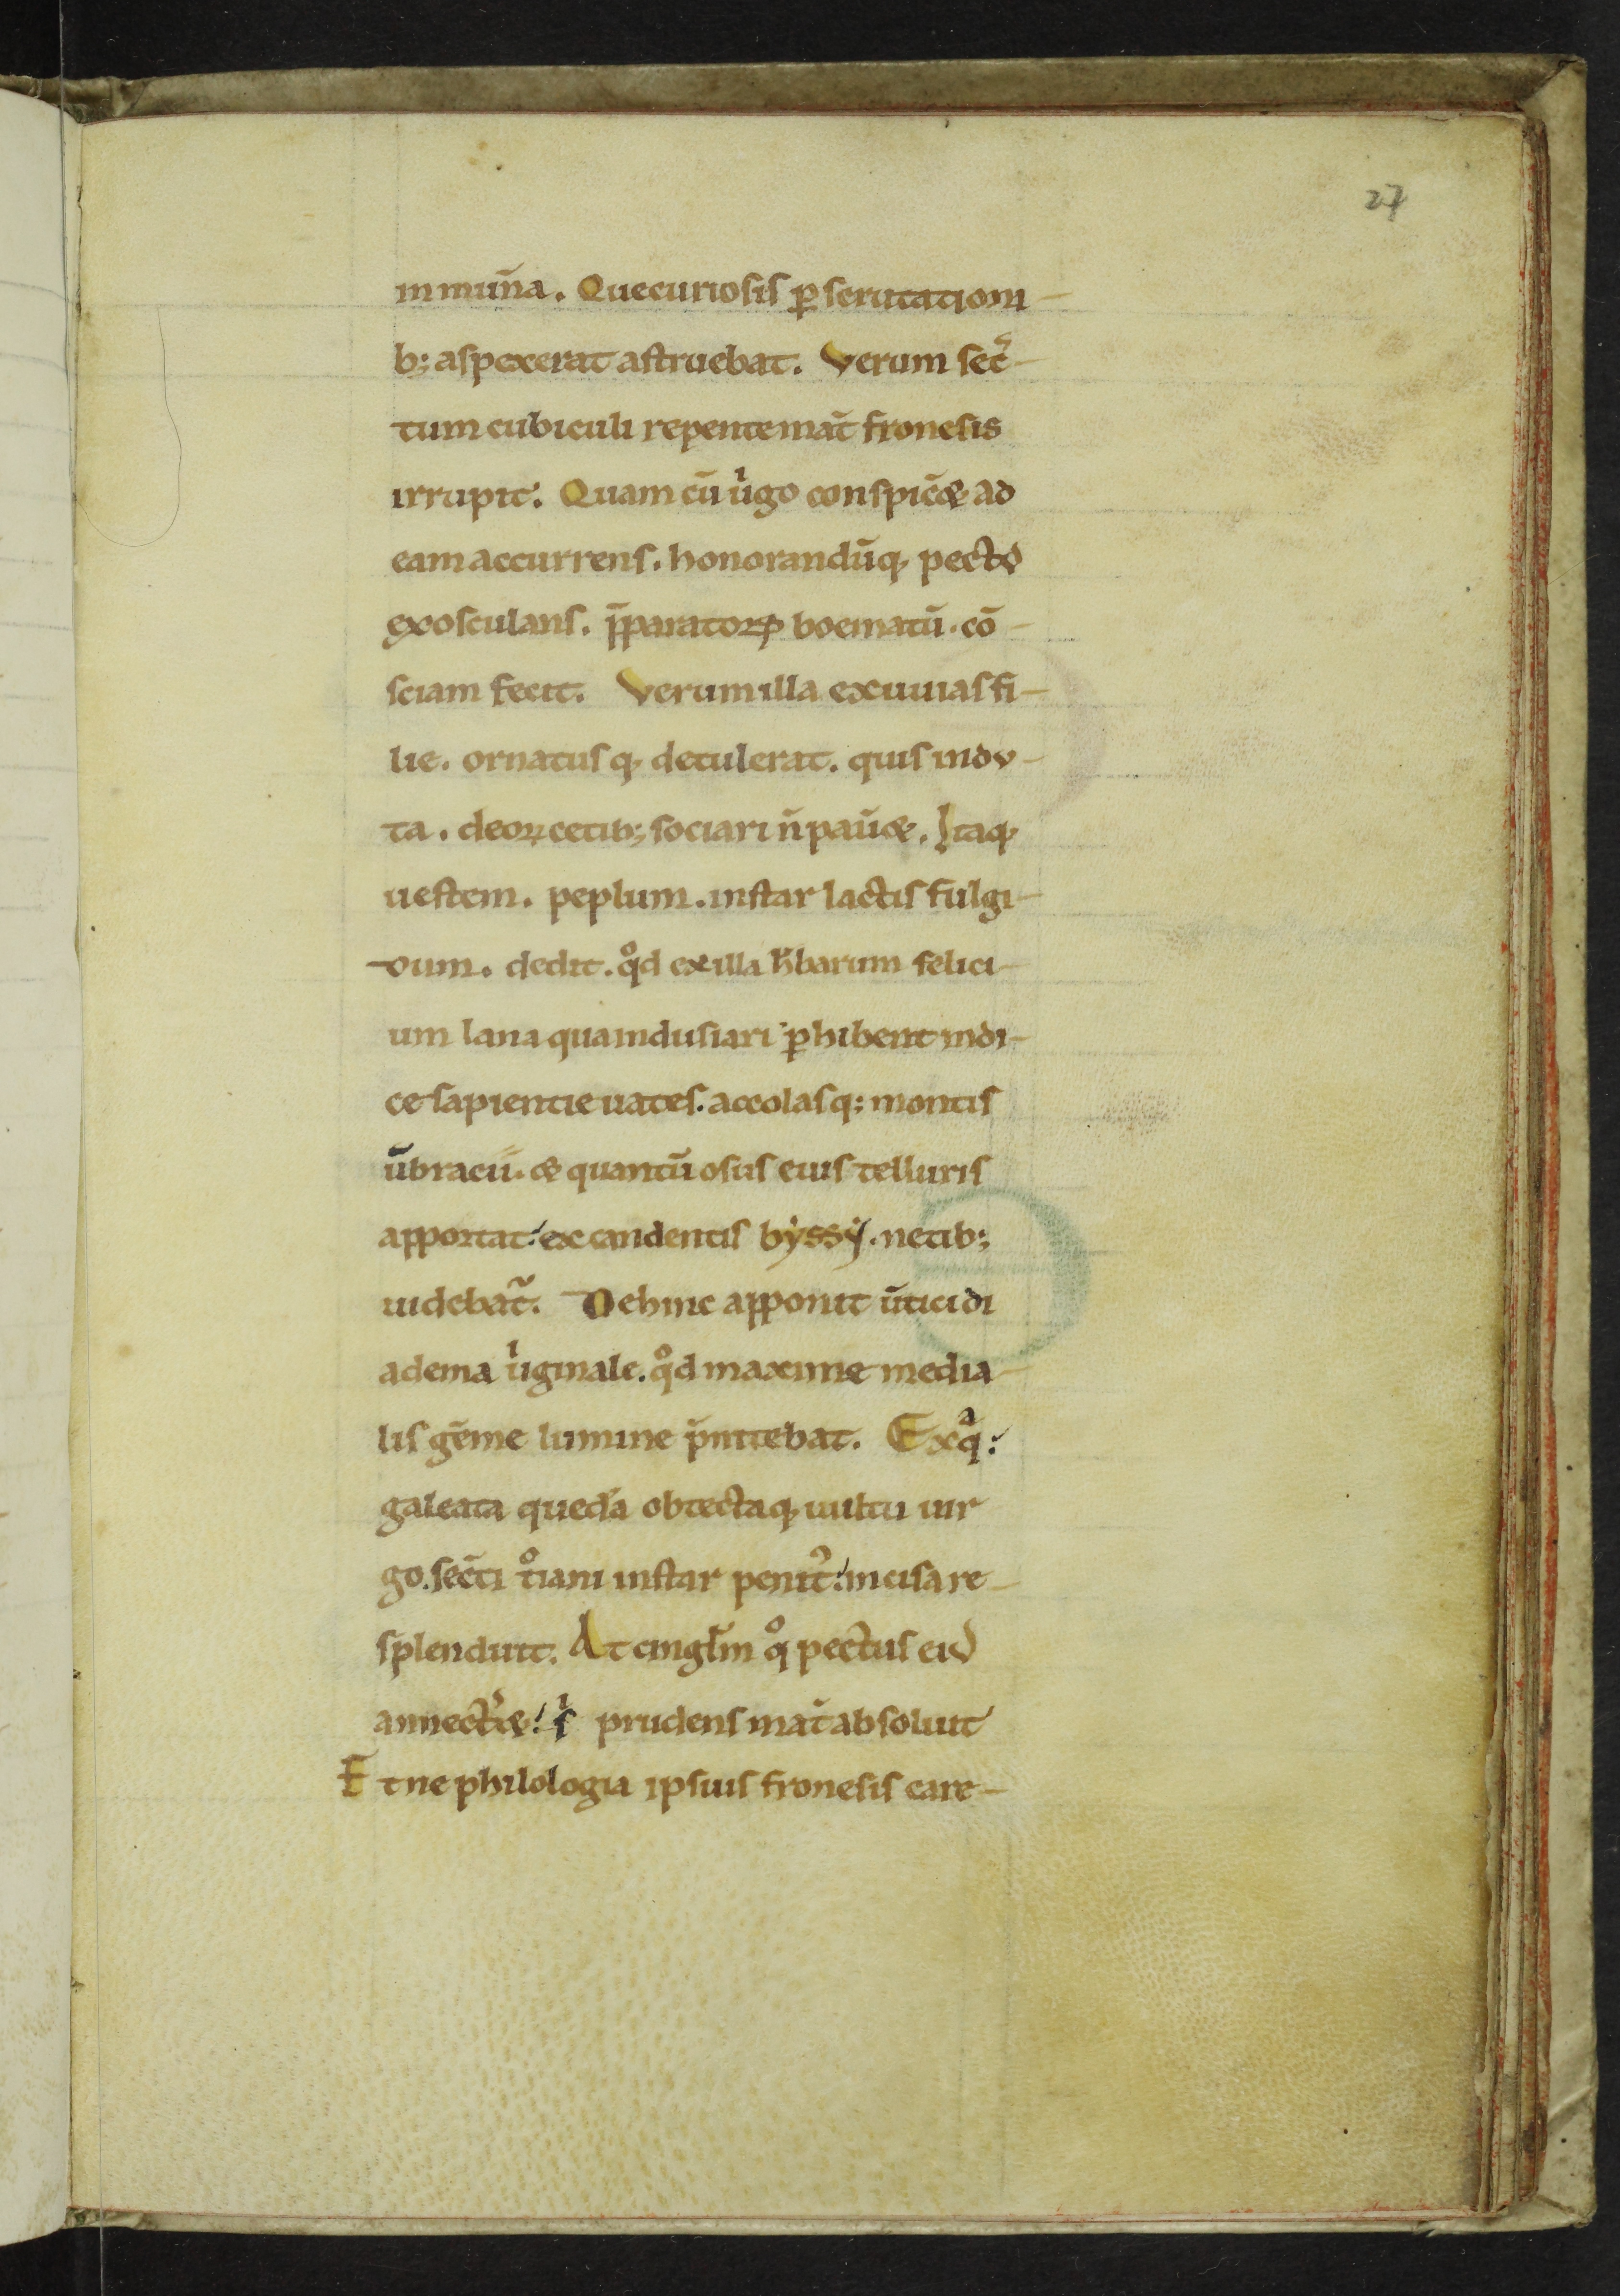 27
inmun̄a. Que curiosis ꝑscrutationi
b; aspexerat astruebat. Verum sec̄
tum cubiculi repente mat̄ fronesis
irrupit. Quam cū uͥgo conspic̄& ad
eam accurrens. honorandūq; pecto
exosculans. p̄paratoꝝ boematū. cō
sciam fecit. Verum illa exuuias fi
lie. ornatusq; detulerat. quis indu
ta. deoꝝ cetib; sociari n̄ pau̅&. Itaq;
uestem. peplum. instar lactis fulgi
dum. dedit. qͦd ex illa h̄barum felici
um lana qua indusiari ꝑhibent indi
ce sapientie uates. accolasq; montis
ūbracū. & quantū usus eius telluris
apportat: ex candentis byssij. netib;
uidebat᷑. Dehinc apponit ūtici di
adema uͥginale. qͦd maxime media
lis gēme lumine p̄nitebat. Ex qͣ:
galeata quedā obtectaq; uultu uir
go. sec̄ti tͦiani instar penit᷒: incisa re
splenduit. At cingl̄m qͦ pectus eid
annect̄&: sͥ prudens mat̄ absoluit
Et ne philologia ipsius fronesis care